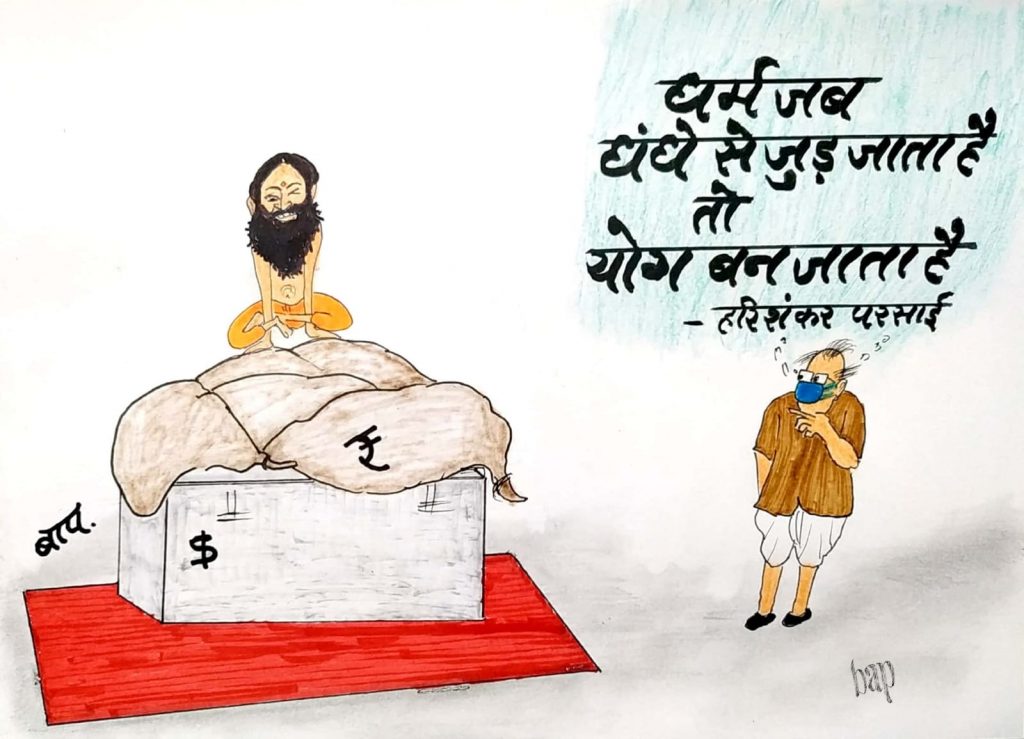 धर्म जब
धंधे से जुड़ जाता है
तो
योग बन जाता है
- हरिशंकर परसाई
₹
$
बाप.
bap